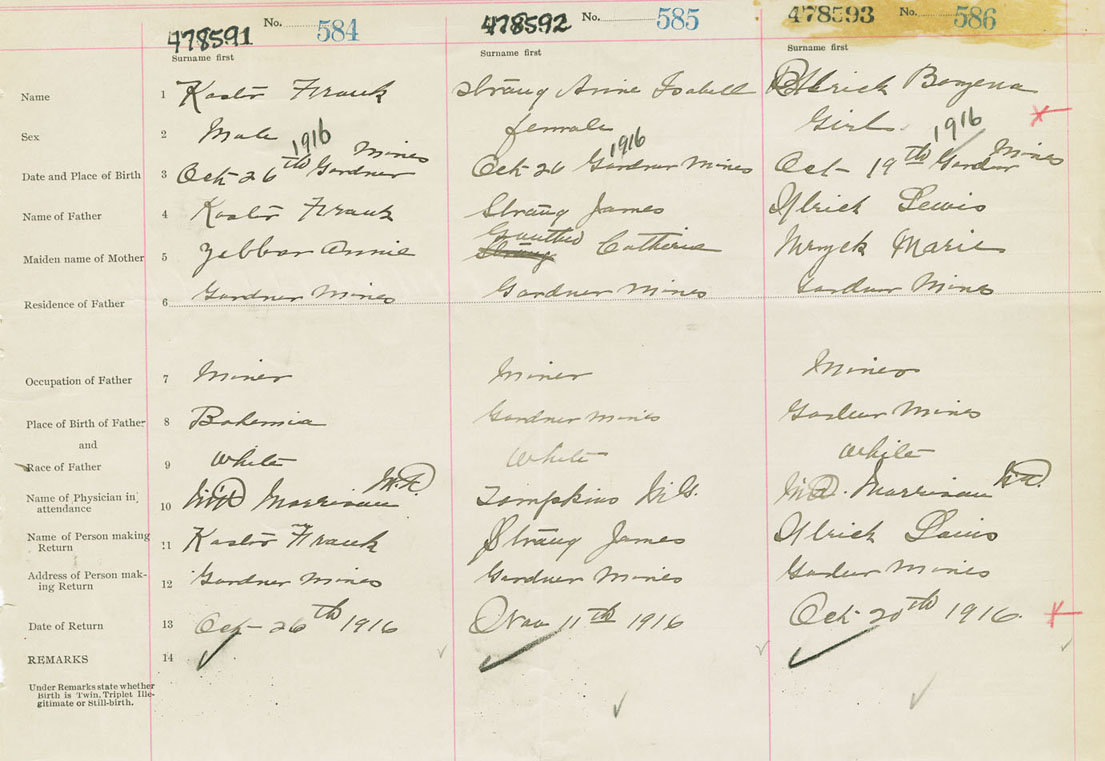 478591 No. 584 478592 No. 585 478593 No. 586
Surname first Surname first Surname first
Name 1 Kastó Frank Strang Annie Isabell Ulrick Bozena
Sex 2 Male female Girl
1916 Mines 1916 1916 Mines
Date and Place of Birth 3 Oct 26th Gardner Oct 26 Gardner Mines Oct 19th Gardner
Name of Father 4 Kastó Frank Strang James Ulrick Lewis
Maiden name of Mother 5 Annie Strang Catherine Marie
Residence of Father 6 Gardner Mines Gardner Mines Gardner Mines
Occupation of Father 7 Miner Miner Miner
Place of Birth of Father 8 Bohemia Gardner Mines Gardner Mines
and
Race of Father 9 White White White
Name of Physician in attendance 10 Morrison M.D. Tompkins M.D. Morrison M.D.
Name of Person making Return 11 Kastó Frank Strang James Ulrick Lewis
Address of Person making Return 12 Gardner Mines Gardner Mines Gardner Mines
Date of Return 13 Oct 26th 1916 Nov 11th 1916 Oct 20th 1916
REMARKS 14
Under Remarks state whether
Birth is Twin, Triplet Ille-
gitimate or Still-birth.